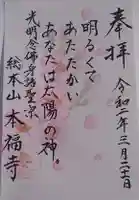 奉拝
令和二年三月二十日
明るくて
あたたかい
あなたは太陽の神。
光明念佛身語聖宗
総本山 本福寺